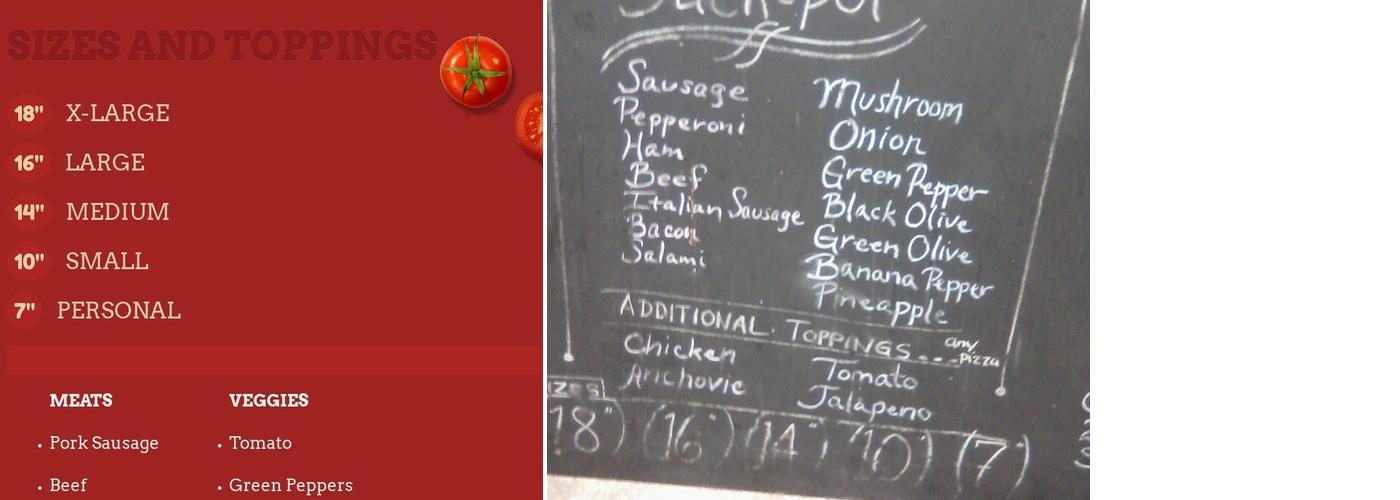 SIZES AND TOPPINGS
18" X-LARGE
16" LARGE
14" MEDIUM
10" SMALL
7" PERSONAL
MEATS
• Pork Sausage
• Beef
VEGGIES
• Tomato
• Green Peppers
Sausage
Pepperoni
Ham
Beef
Italian Sausage
Bacon
Salami
Mushroom
Onion
Green Pepper
Black Olive
Green Olive
Banana Pepper
Pineapple
ADDITIONAL TOPPINGS... any pizza
Chicken
Anchovie
Tomato
Jalapeno
IZES
18" 16" 14" 10" 7"